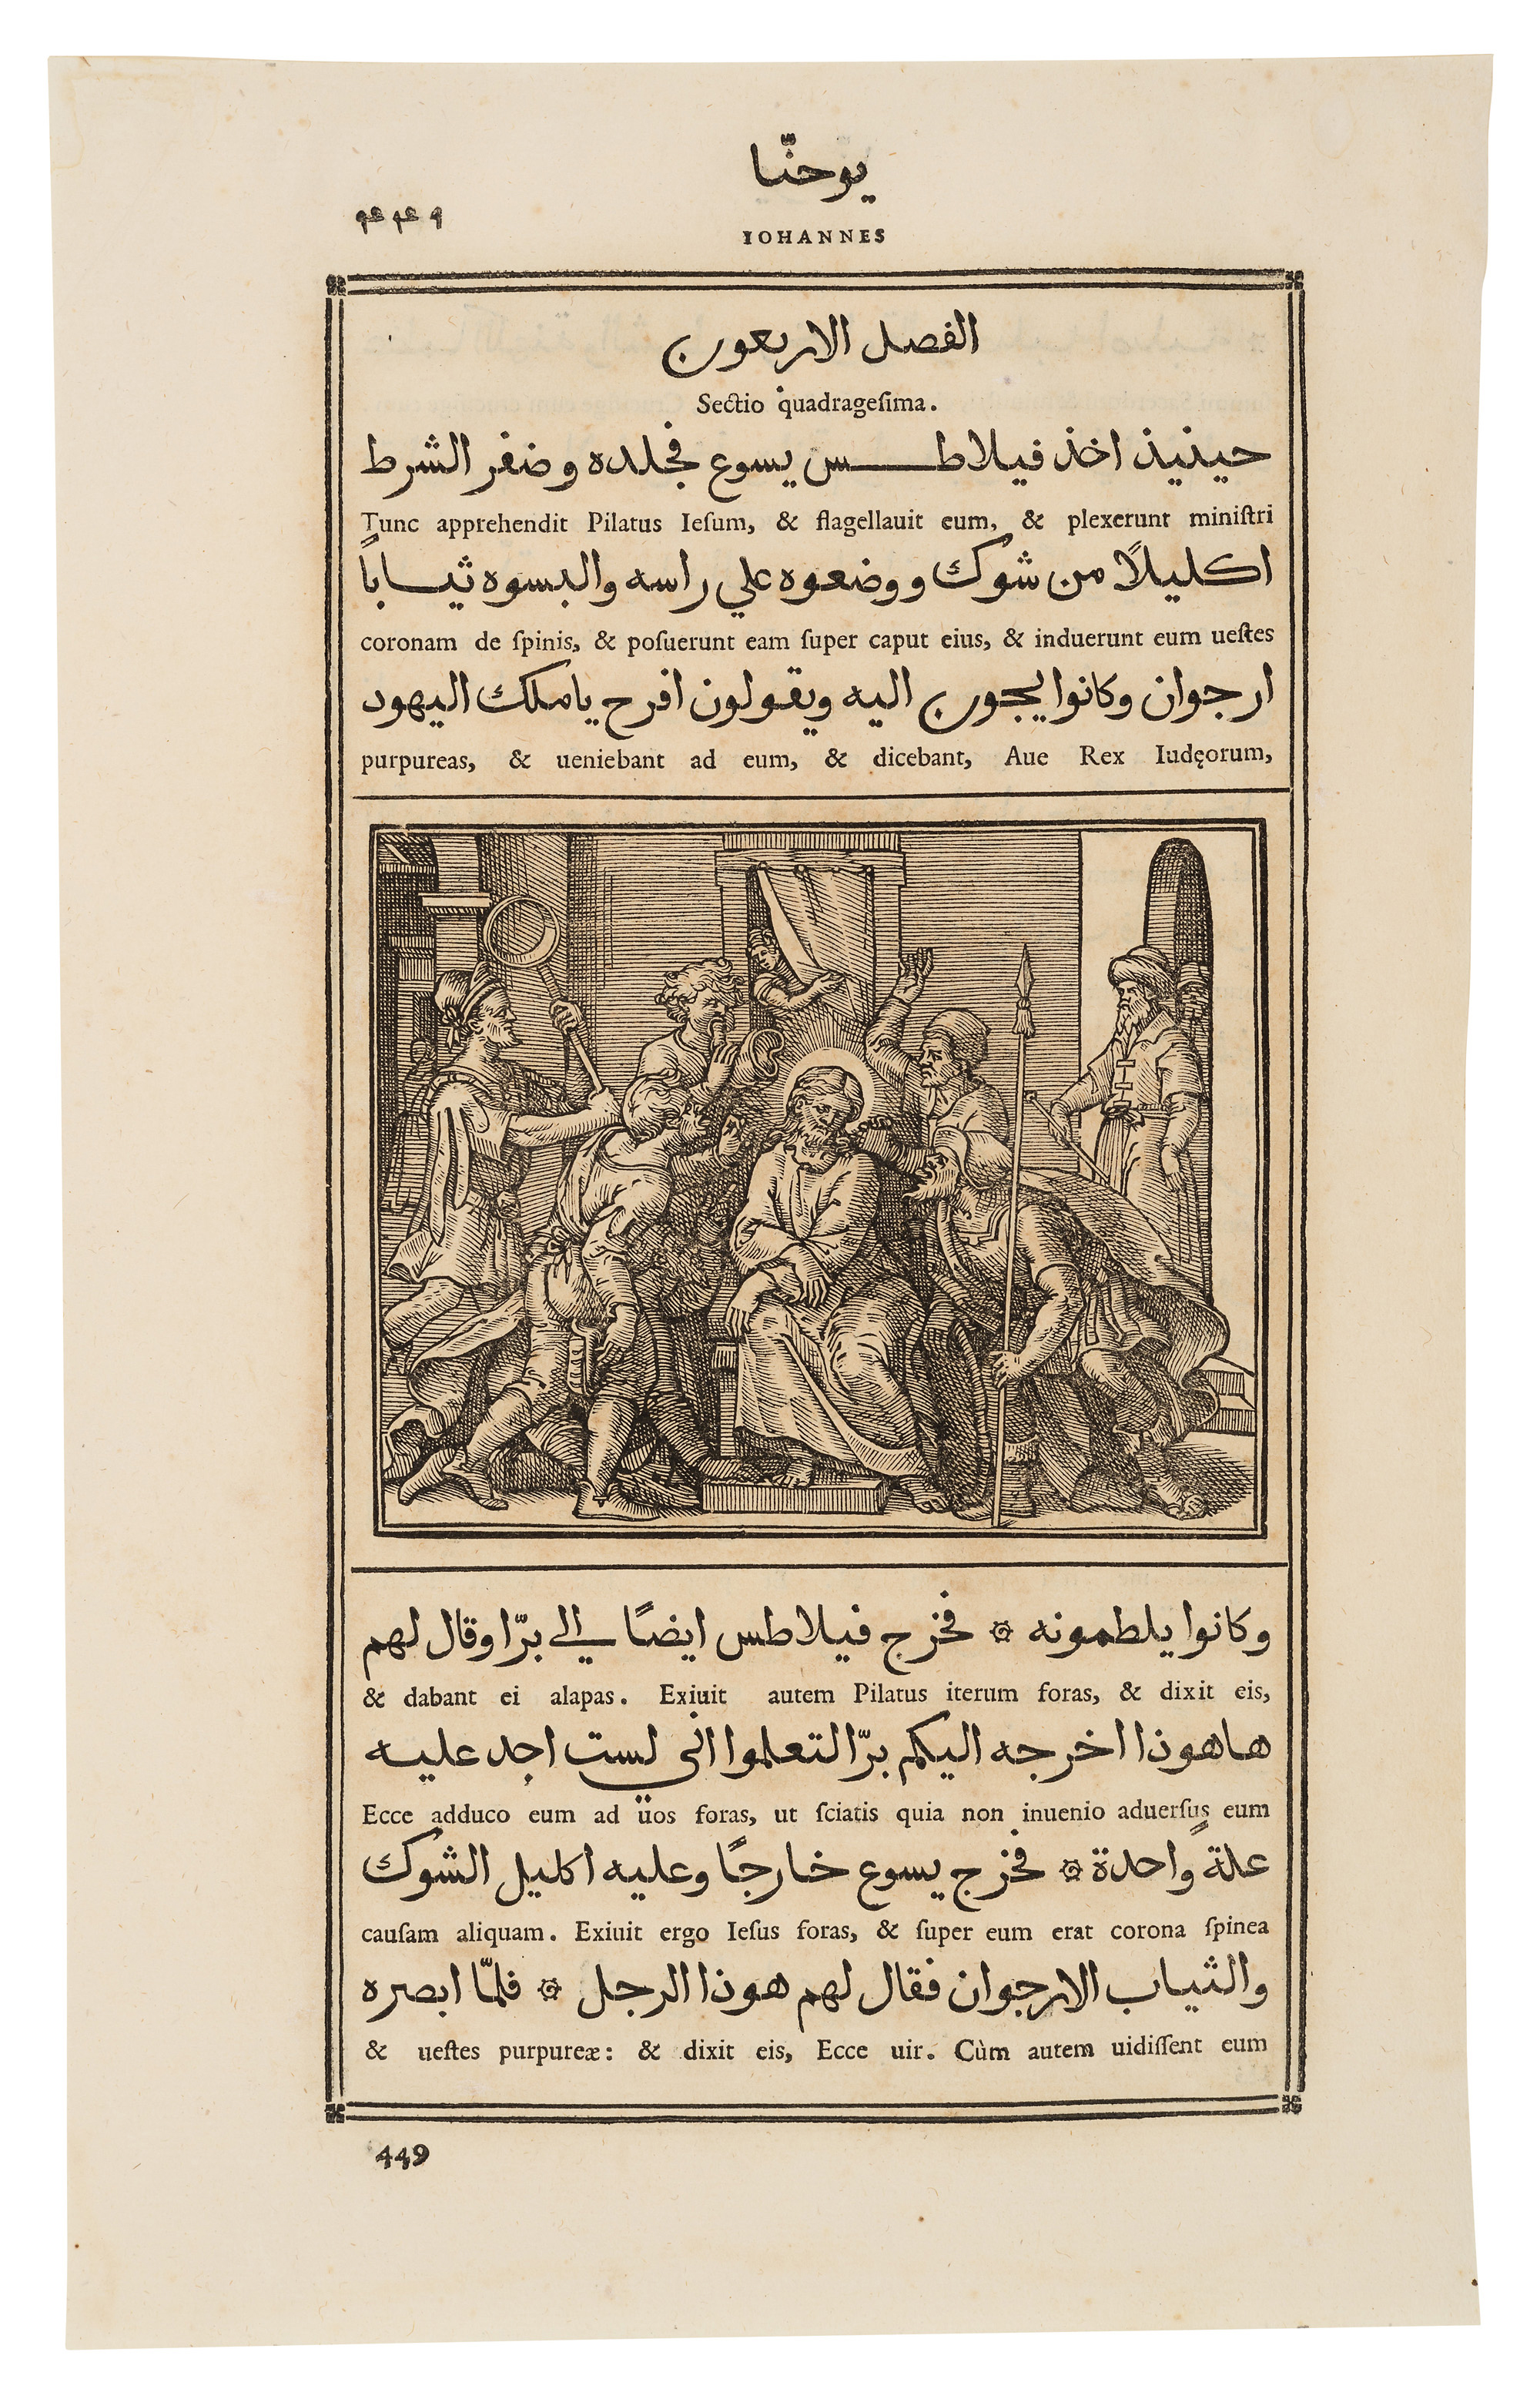 يوحنّا
۴۴۹
IOHANNES
الفصل الاربعون
Sectio quadrageſima.
حينيذ اخذ فيلاطس يسوع فجلده وضفر الشرط
Tunc apprehendit Pilatus Ieſum, & flagellauit eum, & plexerunt miniſtri
اكليلاً من شوك ووضعوه علي راسه والبسوه ثياباً
coronam de ſpinis, & poſuerunt eam ſuper caput eius, & induerunt eum ueſtes
ارجوان وكانوا يجون اليه ويقولون افرح ياملك اليهود
purpureas, & ueniebant ad eum, & dicebant, Aue Rex Iudęorum,
وكانوا يلطمونه ۞ فخرج فيلاطس ايضاً الي برّا وقال لهم
& dabant ei alapas. Exiuit autem Pilatus iterum foras, & dixit eis,
هاهوذا اخرجه اليكم برّا لتعلموا اني لست اجد عليه
Ecce adduco eum ad uos foras, ut ſciatis quia non inuenio aduerſus eum
علة واحدة ۞ فخرج يسوع خارجاً وعليه اكليل الشوك
cauſam aliquam. Exiuit ergo Ieſus foras, & ſuper eum erat corona ſpinea
والثياب الارجوان فقال لهم هوذا الرجل ۞ فلمّا ابصره
& ueſtes purpureæ: & dixit eis, Ecce uir. Cùm autem uidiſſent eum
449